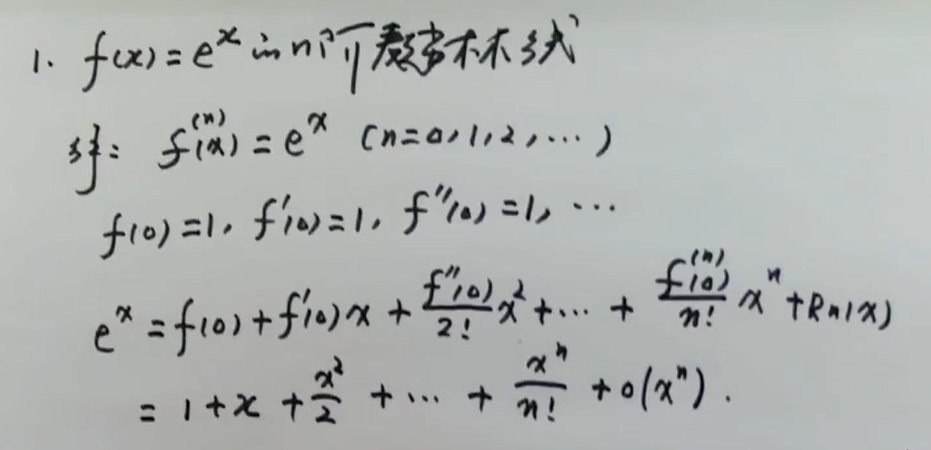 1. f(x)=e^x 的n阶麦劳林公式
解: f^(n)(x)=e^x (n=0,1,2,…)
f(0)=1, f'(0)=1, f''(0)=1, …
e^x=f(0)+f'(0)x+f''(0)/2! x^2+…+f^(n)(0)/n! x^n+Rn(x)
=1+x+x^2/2+…+x^n/n!+o(x^n).